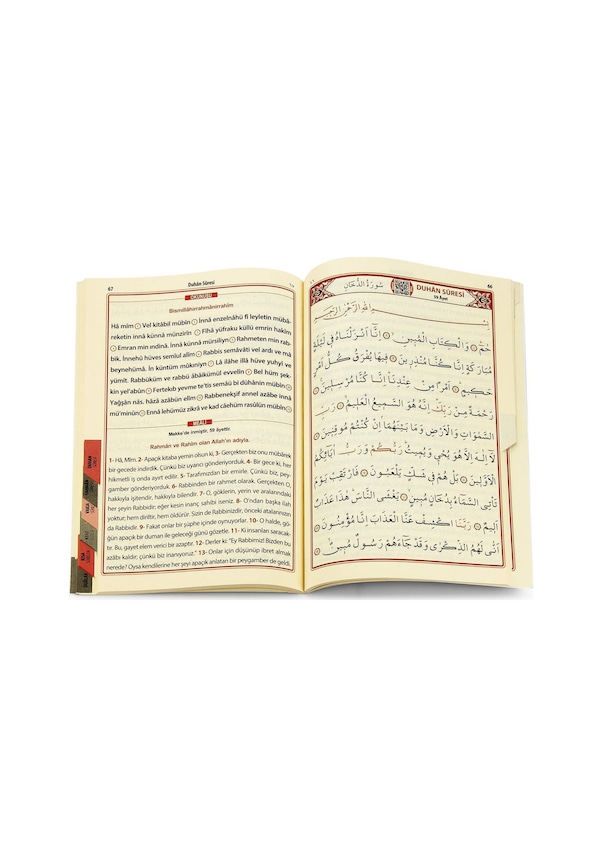 67
Duhân Sûresi
OKUNUŞU
Bismillâhirrahmânirrahîm
Hâ mîm Vel kitâbil mübîn İnnâ enzelnâhü fî leyletin mübâ-
reketin innâ künnâ münzirîn Fîhâ yüfraku küllü emrin hakîm
Emran min ındinâ. İnnâ künnâ mürsiliyn Rahmeten min rab-
bik. İnnehü hüves semîul alîm Rabbis semâvâti vel ardı ve mâ
beynehümâ. İn küntüm mûkıniyn Lâ ilâhe illâ hüve yuhyî ve
yümît. Rabbüküm ve rabbü âbâikümül evvelîn Bel hüm şek-
kin yel'abûn Fertekıb yevme te'tis semâü bi dühânin mübîn
Yağşân nâs, hâzâ azâbün elîm Rabbenekşif annel azâbe innâ
mü'minûn Ennâ lehümüz zikrâ ve kad câehüm rasûlün mübîn
MEÂLİ
Mekke'de inmiştir, 59 âyettir.
Rahmân ve Rahîm olan Allah'ın adıyla.
1- Hâ, Mîm. 2- Apaçık kitaba yemin olsun ki, 3- Gerçekten biz onu mübârek
bir gecede indirdik. Çünkü biz uyarıcı gönderiyorduk. 4- Bir gece ki, her
hikmetli iş onda ayırt edilir. 5- Tarafımızdan bir emirle. Çünkü biz, pey-
gamber gönderiyorduk. 6- Rabbinden bir rahmet olarak. Gerçekten O,
hakkıyla işitendir, hakkıyla bilendir. 7- O, göklerin, yerin ve aralarındaki
her şeyin Rabbidir eğer kesin inanç sahibi iseniz. 8- O'ndan başka ilah
yoktur; hem diriltir, hem öldürür. Sizin de Rabbinizdir, önceki atalarınızın
da Rabbidir. 9- Fakat onlar bir şüphe içinde oynuyorlar. 10- O halde, gö-
ğün apaçık bir duman ile geleceği günü gözetle. 11- Ki insanları saracak-
tır. Bu, gayet elem verici bir azaptır. 12- Derler ki: "Ey Rabbimiz! Bizden bu
azâbı kaldır; çünkü biz inanıyoruz." 13- Onlar için düşünüp ibret almak
nerede? Oysa kendilerine her şeyi apaçık anlatan bir peygamber de geldi.
66
DUHÂN SÛRESİ
59 Âyet
سُورَةُ الدُّخَانِ
بِسْمِ اللّٰهِ الرَّحْمٰنِ الرَّحِيمِ
حٰمٓ وَالْكِتَابِ الْمُبِينِ اِنَّٓا اَنْزَلْنَاهُ فِي لَيْلَةٍ
مُبَارَكَةٍ اِنَّا كُنَّا مُنْذِرِينَ فِيهَا يُفْرَقُ كُلُّ اَمْرٍ
حَكِيمٍ اَمْرًا مِنْ عِنْدِنَا اِنَّا كُنَّا مُرْسِلِينَ
رَحْمَةً مِنْ رَبِّكَ اِنَّهُ هُوَ السَّمِيعُ الْعَلِيمُ رَبِّ
السَّمٰوَاتِ وَالْاَرْضِ وَمَا بَيْنَهُمَا اِنْ كُنْتُمْ مُوقِنِينَ
لَٓا اِلٰهَ اِلَّا هُوَ يُحْيِي وَيُمِيتُ رَبُّكُمْ وَرَبُّ اٰبَٓائِكُمُ
الْاَوَّلِينَ بَلْ هُمْ فِي شَكٍّ يَلْعَبُونَ فَارْتَقِبْ يَوْمَ
تَأْتِي السَّمَٓاءُ بِدُخَانٍ مُبِينٍ يَغْشَى النَّاسَ هٰذَا عَذَابٌ
اَلِيمٌ رَبَّنَا اكْشِفْ عَنَّا الْعَذَابَ اِنَّا مُؤْمِنُونَ
اَنّٰى لَهُمُ الذِّكْرٰى وَقَدْ جَٓاءَهُمْ رَسُولٌ مُبِينٌ